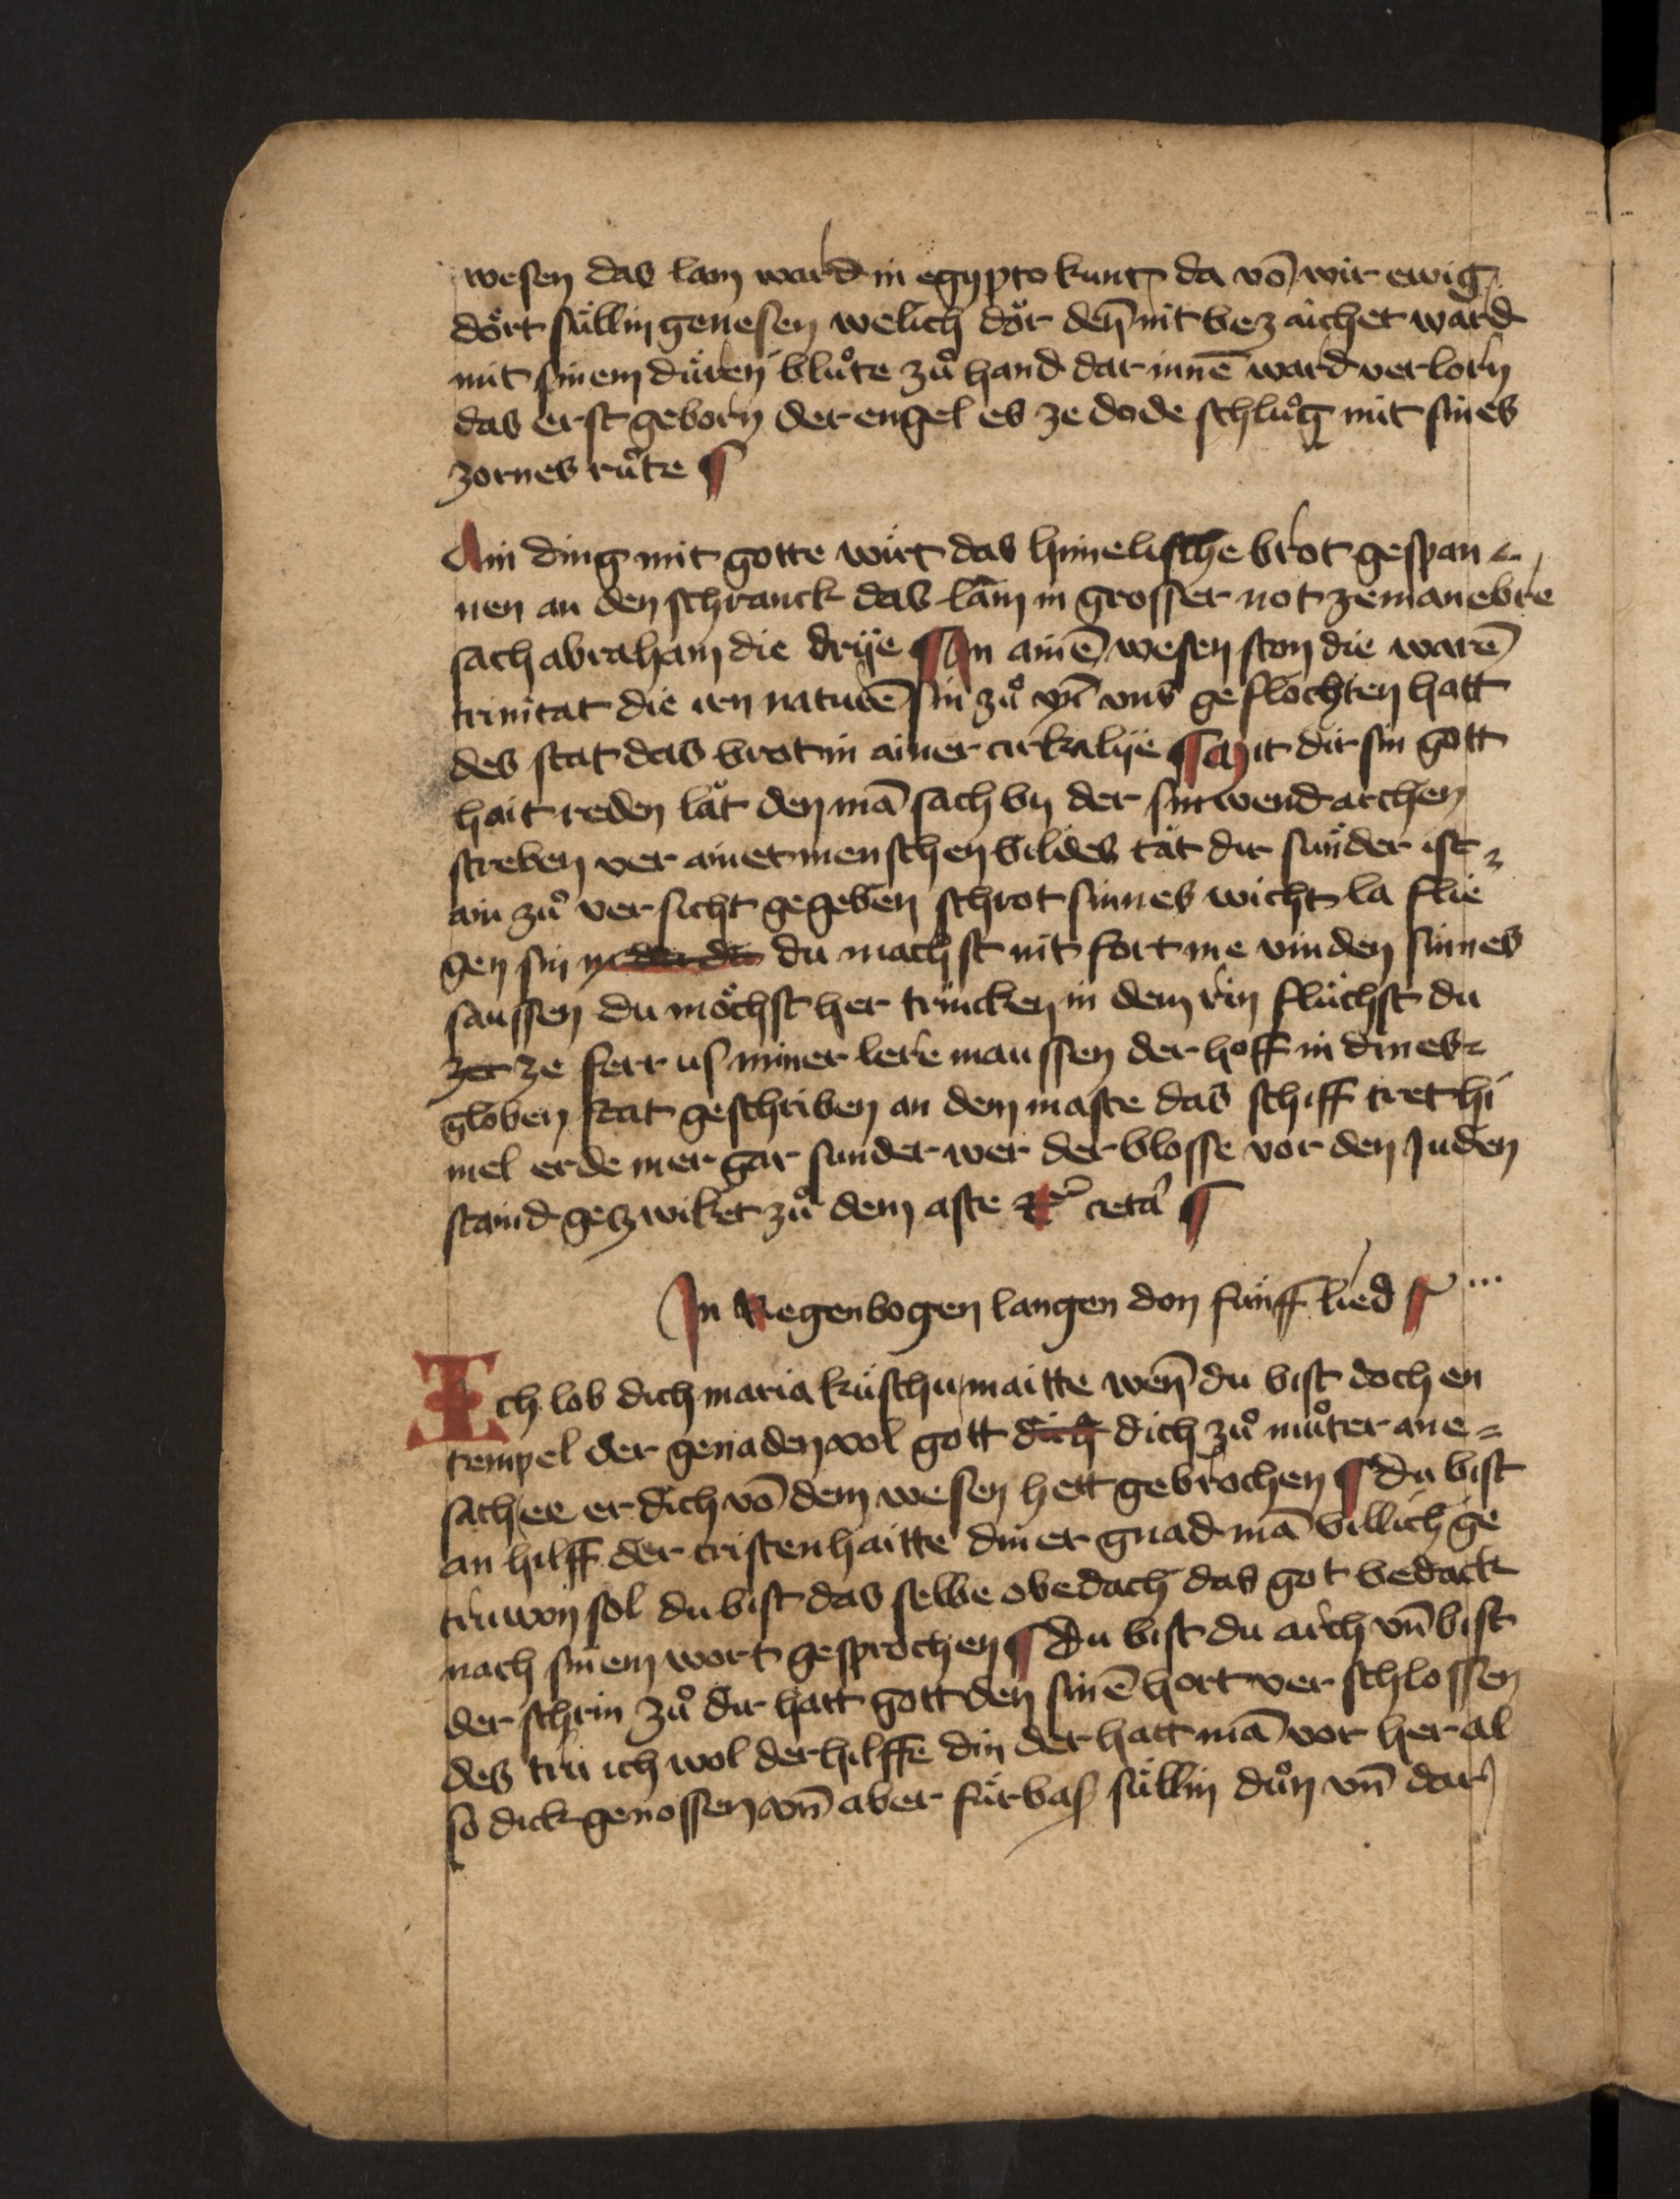 wesen das lam ward in egypto kunt da vō wir ewig
dört süllin genesen welich dör den̄ nit bezaichet ward
mit sinem düren blůte zů hand dar innē ward verlorn
das erst geborn der engel es ze dode schlůg mit sines
zornes růte ¶
Ain ding mit gotte würt das himelische brot gespan
nen an den schranck das lam in grosser not ze manebre
sach abraham die drÿe ¶ In ainē wesen ston die warē
trinitat die ien naturē sin zů vn̄ vns geflochten hatt
des stat das brot in ainer cirkalÿe ¶ Mit dir sin gott
hait reden lät den mā sach by der sintwend archen
streben ver ainet menschen bildes tät dir sünder ist
ain zů versicht gegeben schrot sinnes wicht la flie
gen sin du machst nit fort me vinden sinnes
saussen du möchst her trincken in dem rin flüchst du
zer ze ferr us miner lere maussen der hoff in dines
globen stat geschriben an dem maste das schiff tret hi
mel erde mer gar sunder wer der blosse vor den Juden
staind gezwiket zů dem aste Rē cetā ¶
In Regenbogen langen don fünff lied ¶
Ich lob dich maria küschu maitte wen̄ du bist doch en
tempel der genaden vol gott dich dich zů můter ane=
sach ee er dich vō dem wesen hett gebrochen ¶ du bist
an hilff der cristenhaitte diner gnad mā billich ge
truwon sol du bist das selbe obedach das got bedackt
nach sinem wort gesprochen ¶ Du bist du arch vn̄ bist
der schrin zů dir hatt gott den sinē hort verschlossen
des trü ich wol der hilffe din der hatt mā vor her al
so dick genossen vn̄ aber fürbas süllin důn vn̄ dar